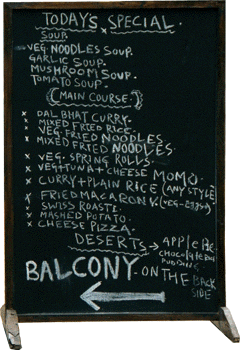 TODAY'S SPECIAL.
SOUP.
VEG. NOODLES SOUP.
GARLIC SOUP.
MUSHROOM SOUP.
TOMATO SOUP.
MAIN COURSE
x DAL BHAT CURRY.
x MIXED FRIED RICE.
x VEG. FRIED NOODLES.
x MIXED FRIED NOODLES.
x VEG. SPRING ROLLS.
x VEG+TUNA+CHEESE MOMO.
x CURRY+PLAIN RICE (ANY STYLE)
x FRIED MACARONI. (VEG-EGGS)
x SWISS ROASTI.
x MASHED POTATO.
x CHEESE PIZZA.
DESERTS → APPLE PIE
CHOCOLATE
PUDDING
BALCONY ON THE BACK SIDE